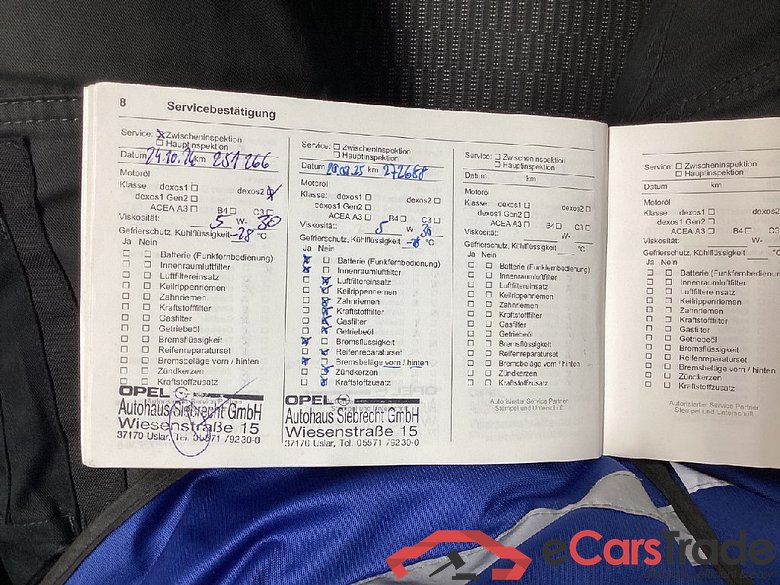 8
Servicebestätigung
Service: Zwischeninspektion
Hauptinspektion
Datum 24.10.24 km 251 266
Motoröl
Klasse: dexos1 dexos2
dexos1 Gen2
ACEA A3 B4 C3
Viskosität: 5 W- 30
Gefrierschutz, Kühlflüssigkeit -28 °C
Ja Nein
Batterie (Funkfernbedienung)
Innenraumluftfilter
Luftfiltereinsatz
Keilrippenriemen
Zahnriemen
Kraftstofffilter
Gasfilter
Getriebeöl
Bremsflüssigkeit
Reifenreparaturset
Bremsbeläge vorn / hinten
Zündkerzen
Kraftstoffzusatz
OPEL
Autohaus Siebrecht GmbH
Wiesenstraße 15
37170 Uslar, Tel. 05571 /9230-0
Service: Zwischeninspektion
Hauptinspektion
Datum km 272688
Motoröl
Klasse: dexos1 dexos2
dexos1 Gen2
ACEA A3 B4 C3
Viskosität: 5 W 30
Gefrierschutz, Kühlflüssigkeit °C
Ja Nein
Batterie (Funkfernbedienung)
Innenraumluftfilter
Luftfiltereinsatz
Keilrippenriemen
Zahnriemen
Kraftstofffilter
Gasfilter
Getriebeöl
Bremsflüssigkeit
Reifenreparaturset
Bremsbeläge vorn / hinten
Zündkerzen
Kraftstoffzusatz
OPEL
Autohaus Siebrecht GmbH
Wiesenstraße 15
37170 Uslar, Tel. 05571 /9230-0
Service: Zwischeninspektion
Hauptinspektion
Datum km
Motoröl
Klasse: dexos1 dexos2
dexos1 Gen2
ACEA A3 B4 C3
Viskosität: W-
Gefrierschutz, Kühlflüssigkeit °C
Ja Nein
Batterie (Funkfernbedienung)
Innenraumluftfilter
Luftfiltereinsatz
Keilrippenriemen
Zahnriemen
Kraftstofffilter
Gasfilter
Getriebeöl
Bremsflüssigkeit
Reifenreparaturset
Bremsbeläge vorn / hinten
Zündkerzen
Kraftstoffzusatz
Autorisierter Service Partner
Stempel und Unterschrift
Service: Zwischeninspektion
Hauptinspektion
Datum km
Motoröl
Klasse: dexos1
dexos1 Gen2
ACEA A3 B4
Viskosität: W-
Gefrierschutz, Kühlflüssigkeit
Ja Nein
Batterie (Funkfernbedienung)
Innenraumluftfilter
Luftfiltereinsatz
Keilrippenriemen
Zahnriemen
Kraftstofffilter
Gasfilter
Getriebeöl
Bremsflüssigkeit
Reifenreparaturset
Bremsbeläge vorn / hinten
Zündkerzen
Kraftstoffzusatz
Autorisierter Service Partner
Stempel und Unterschrift
eCarsTrade